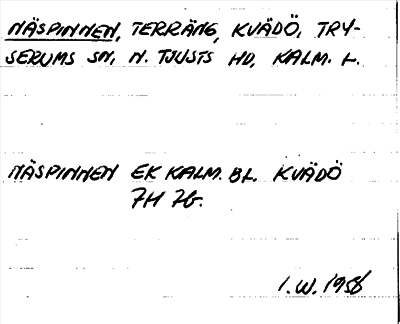 NÄSPINNEN, TERRÄNG, KVÄDÖ, TRY-
SERUMS SN, N. TJUSTS HD, KALM. L.
NÄSPINNEN EK KALM. BL. KVÄDÖ
7H 7b.
I.W. 1958